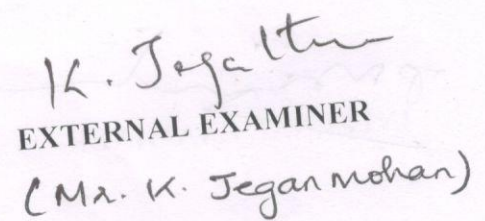 K.
EXTERNAL EXAMINER
(Mr. K. Jegan mohan)